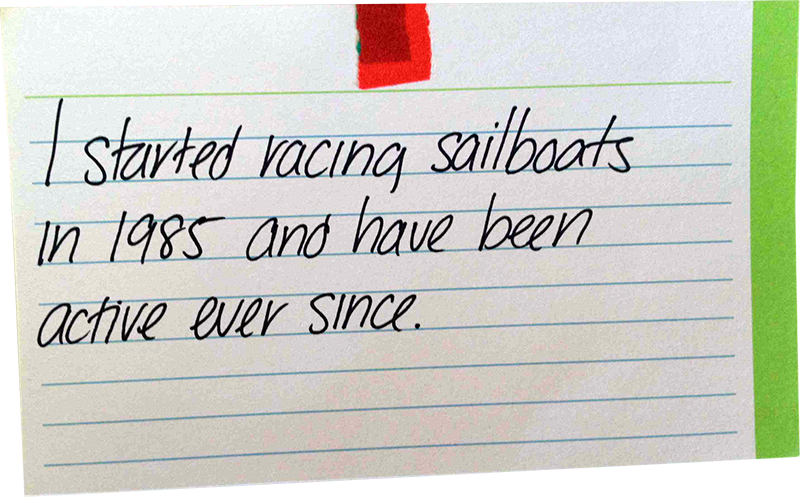 I started racing sailboats
in 1985 and have been
active ever since.